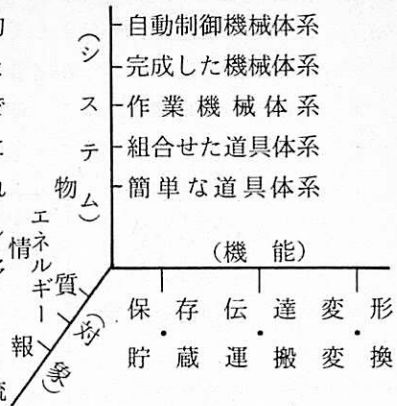 (システム)
自動制御機械体系
完成した機械体系
作業機械体系
組合せた道具体系
簡単な道具体系
(機能)
保存・貯蔵
伝達・運搬
変形・変換
物質
エネルギー
情報
(対象)